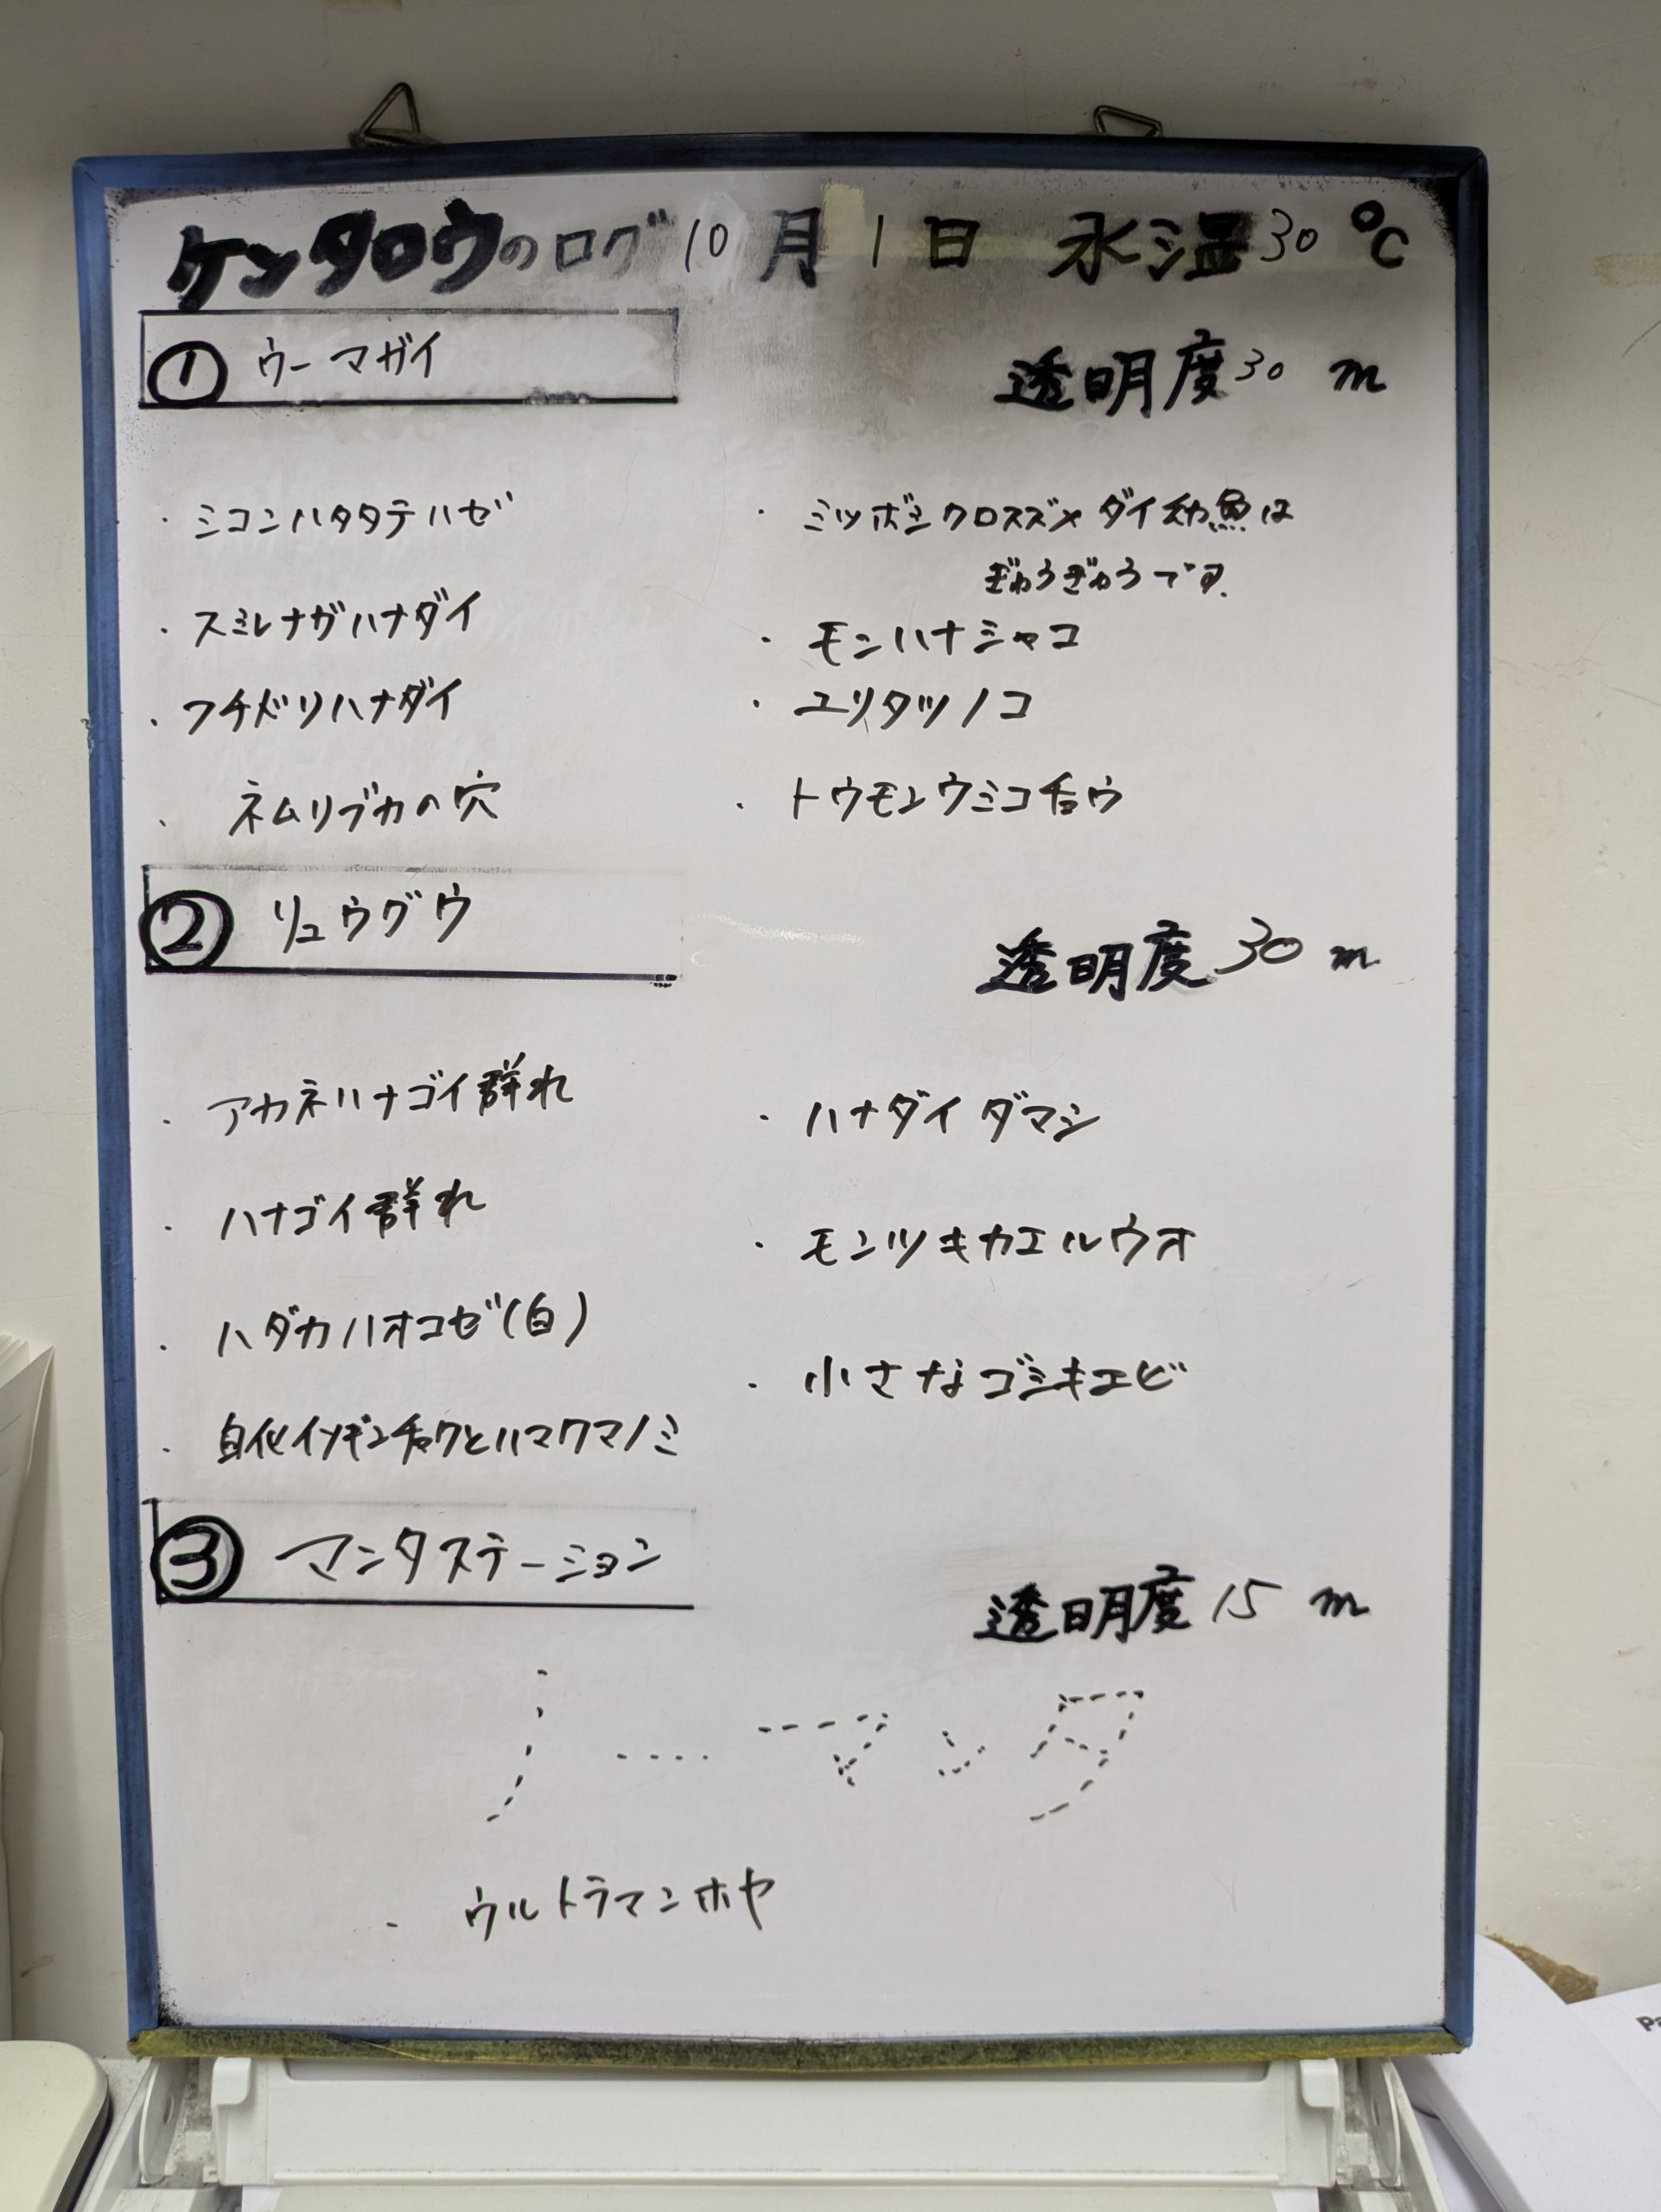 ケンタロウのログ 10月1日 水温30℃
① ウーマガイ
透明度30m
・ミコンハタタテハゼ
・スミレナガハナダイ
・フチドリハナダイ
・ネムリブカの穴
・ミツボシクロスズメダイ幼魚は
ぎゅうぎゅうです.
・モンハナシャコ
・ユリタツノコ
・トウモンウミコチョウ
② リュウグウ
透明度30m
・アカネハナゴイ群れ
・ハナゴイ群れ
・ハダカハオコゼ(白)
・白化イソギンチャクとハマクマノミ
・ハナダイダマシ
・モンツキカエルウオ
・小さなゴシキエビ
③ マンタステーション
透明度15m
ノーマンタ
・ウルトラマンホヤ